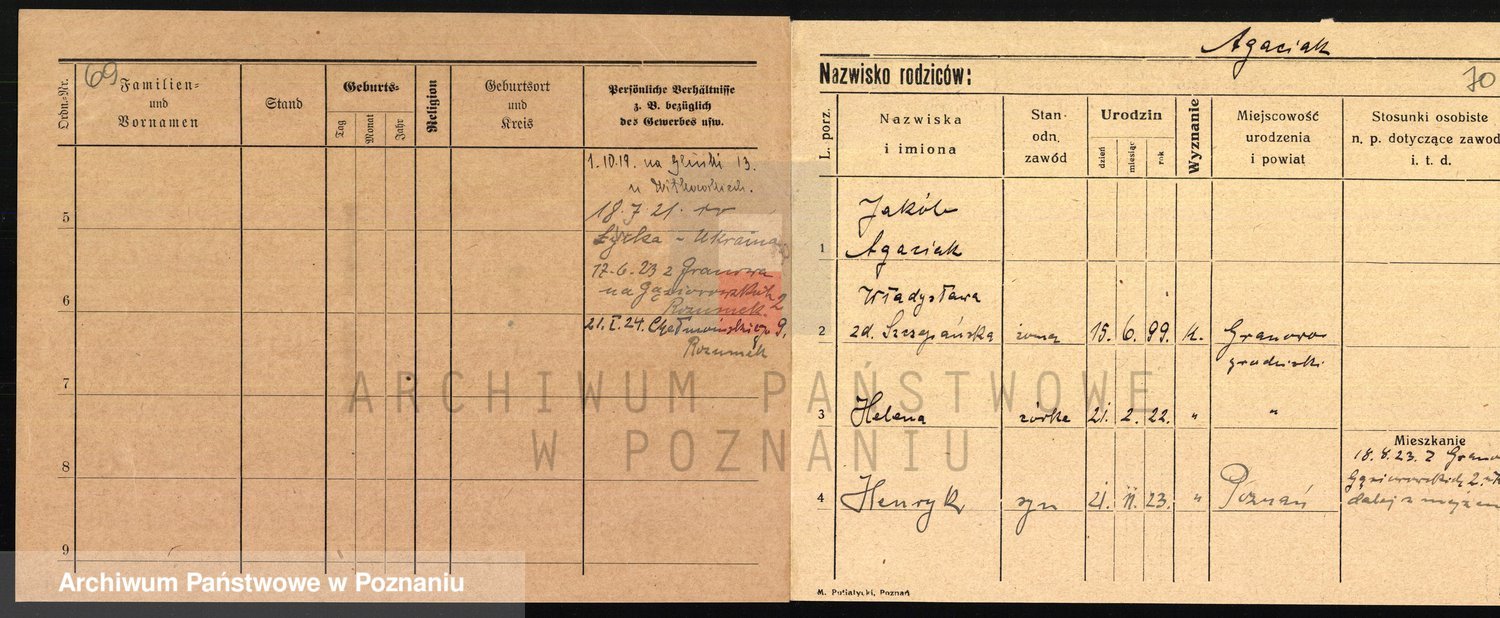 69
Ordn.-Nr.
Familien-
und
Vornamen
Stand
Geburts-
Tag
Monat
Jahr
Religion
Geburtsort
und
Kreis
Persönliche Verhältnisse
z. B. bezüglich
des Gewerbes usw.
1.10.19. na Gliński 13.
u Witkowskich.
18.7.21.
Łyczka - Ukraina
17-6-23 z Granowa
na Gąsiorowskich 2
Rozumek.
21.I.24. Chełmońskiego 9.
Rozumek
5
6
7
8
9
Agaciak
Nazwisko rodziców:
70
L. porz.
Nazwiska
i imiona
Stan-
odn.
zawód
Urodzin
dzień
miesiąc
rok
Wyznanie
Miejscowość
urodzenia
i powiat
Stosunki osobiste
n. p. dotyczące zawod
i. t. d.
Jakób
1 Agaciak
Władysława
2 zd. Szczepańska żona 15. 6. 99. k. Granowo
grodziski
3 Helena córka 21. 2. 22. " "
Mieszkanie
18.8.23. z Grano
Gąsiorowskich 2.
4 Henryk syn 21. 11. 23. " Poznań
dalej z mężem
M. Putiatycki, Poznań
ARCHIWUM PAŃSTWOWE
W POZNANIU
Archiwum Państwowe w Poznaniu